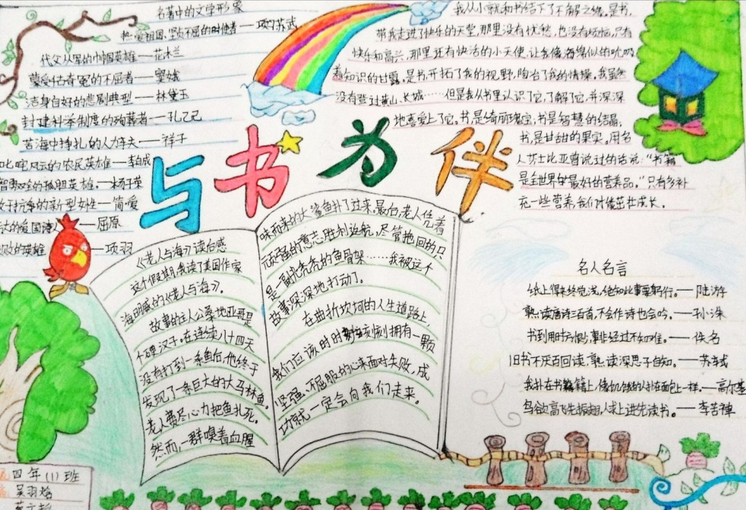 名著中的文学形象
热爱祖国,坚贞不屈的时使者——项门苏武
代父从军的巾帼英雄——花木兰
蒙受千古奇冤的不屈者——窦娥
洁身自好的悲剧典型——林黛玉
封建科举制度的殉葬者——孔乙己
苦海中挣扎的人力车夫——祥子
叱咤风云的农民英雄——李自成
的孤胆英雄——杨子荣
抗争的新型女性——简爱
——屈原
的英雄——项羽
我从小就和书结下了不解之缘,是书,
带我走进了快乐的天堂,那里没有忧愁,也没有烦恼,只有
快乐和高兴,那里还有快活的小天使,让我像海绵似的吮吸
着知识的甘露,是书开拓了我的视野,陶冶了我的情操,我虽然
没有登过黄山、长城……但是我从书里认识了它,了解了它,并深深
地喜爱上了它。书,是绮丽瑰宝,书,是智慧的结晶,
书,是甘甜的果实,用名
人莎士比亚曾说过的话说:“书籍
是全世界的最好的营养品。”只有多补
充一些营养,我们才能茁壮成长。
与书为伴
《老人与海》读后感
这个假期我读了美国作家
海明威的《老人与海》。
故事的主人公桑地亚哥是
个硬汉子,在连续八十四天
没有打到一条鱼后,他终于
发现了一条巨大的大马林鱼。
老人费尽心力把鱼扎死。
然而,一群嗅着血腥
味而来的大鲨鱼扑了过来,最后,老人凭着
顽强的意志胜利返航,尽管拖回的只
是一副光秃秃的鱼骨架……我被这个
故事深深地打动了。
在曲折坎坷的人生道路上,
我们应该时时刻刻拥有一颗
坚强、不屈服的心来面对失败,成
功就一定会向我们走来。
名人名言
纸上得来终觉浅,绝知此事要躬行。——陆游
熟读唐诗三百首,不会作诗也会吟。——孙洙
书到用时方恨少,事非经过不知难。——佚名
旧书不厌百回读,熟读深思子自知。——苏轼
我扑在书籍上,像饥饿的人扑在面包上一样。——高尔基
鸟欲高飞先振翅,人求上进先读书。——李苦禅
四年(1)班